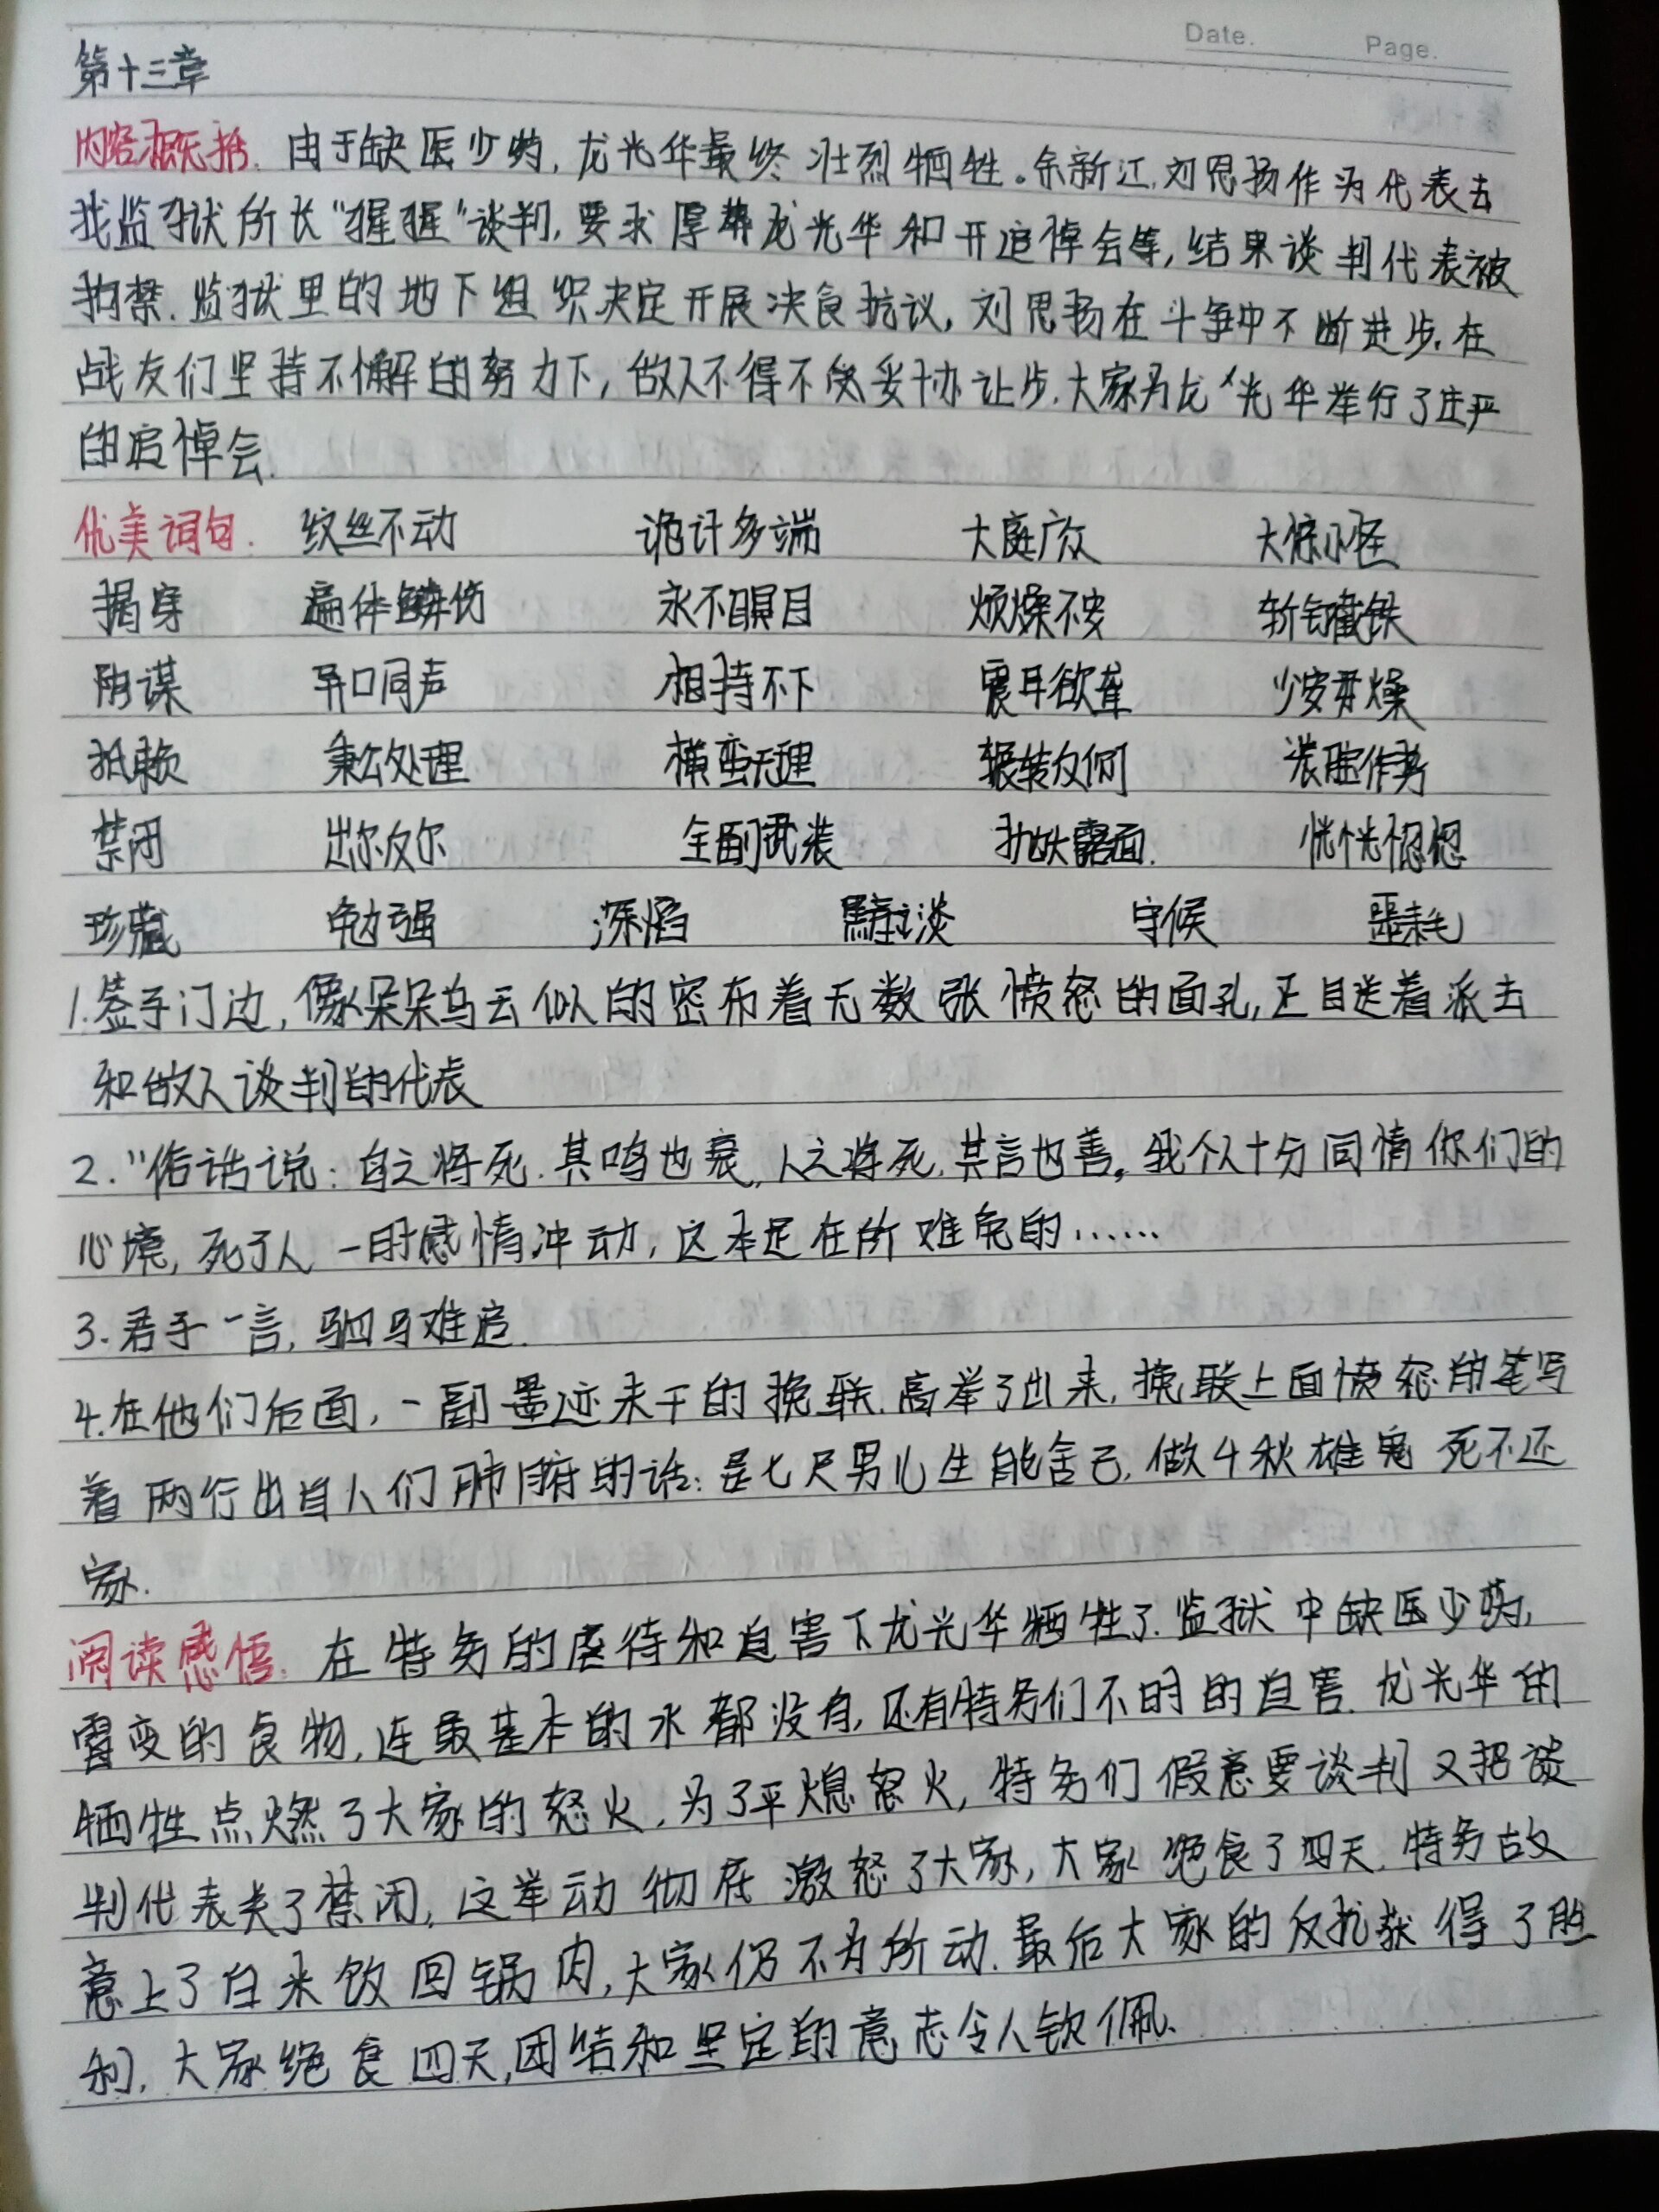 Date.    Page.
第十三章
内容概括. 由于缺医少药,龙光华最终壮烈牺牲。余新江,刘思扬作为代表去
找监狱所长“猩猩”谈判,要求厚葬龙光华和开追悼会等,结果谈判代表被
拘禁.监狱里的地下组织决定开展决食抗议,刘思扬在斗争中不断进步.在
战友们坚持不懈的努力下,敌人不得不做妥协让步.大家为龙光华举行了庄严
的追悼会.
优美词句. 纹丝不动 诡计多端 大庭广众 大惊小怪
揭穿 遍体鳞伤 永不瞑目 烦燥不安 斩钉截铁
阴谋 异口同声 相持不下 震耳欲聋 少安毋燥
抵赖 秉公处理 横蛮无理 辗转反侧 装腔作势
禁闭 出尔反尔 全副武装 抛头露面. 恍恍惚惚
珍藏 勉强 深陷 黯淡 守候 噩耗
1.签子门边,像朵朵乌云似的密布着无数张愤怒的面孔,正目送着派去
和敌人谈判的代表
2.“俗话说:鸟之将死.其鸣也哀,人之将死,其言也善。我个人十分同情你们的
心境,死了人一时感情冲动,这本是在所难免的……
3.君子一言,驷马难追.
4.在他们后面,一副墨迹未干的挽联.高举了出来,挽联上面愤怒的笔写
着两行出自人们肺腑的话:是七尺男儿生能舍己,做千秋雄鬼死不还
家.
阅读感悟. 在特务的虐待和迫害下龙光华牺牲了.监狱中缺医少药,
霉变的食物,连最基本的水都没有,还有特务们不时的迫害.龙光华的
牺牲点燃了大家的怒火.为了平熄怒火,特务们假意要谈判又把谈
判代表关了禁闭,这举动彻底激怒了大家,大家绝食了四天.特务故
意上了白米饭回锅肉,大家仍不为所动.最后大家的反抗获得了胜
利,大家绝食四天,团结和坚定的意志令人钦佩.